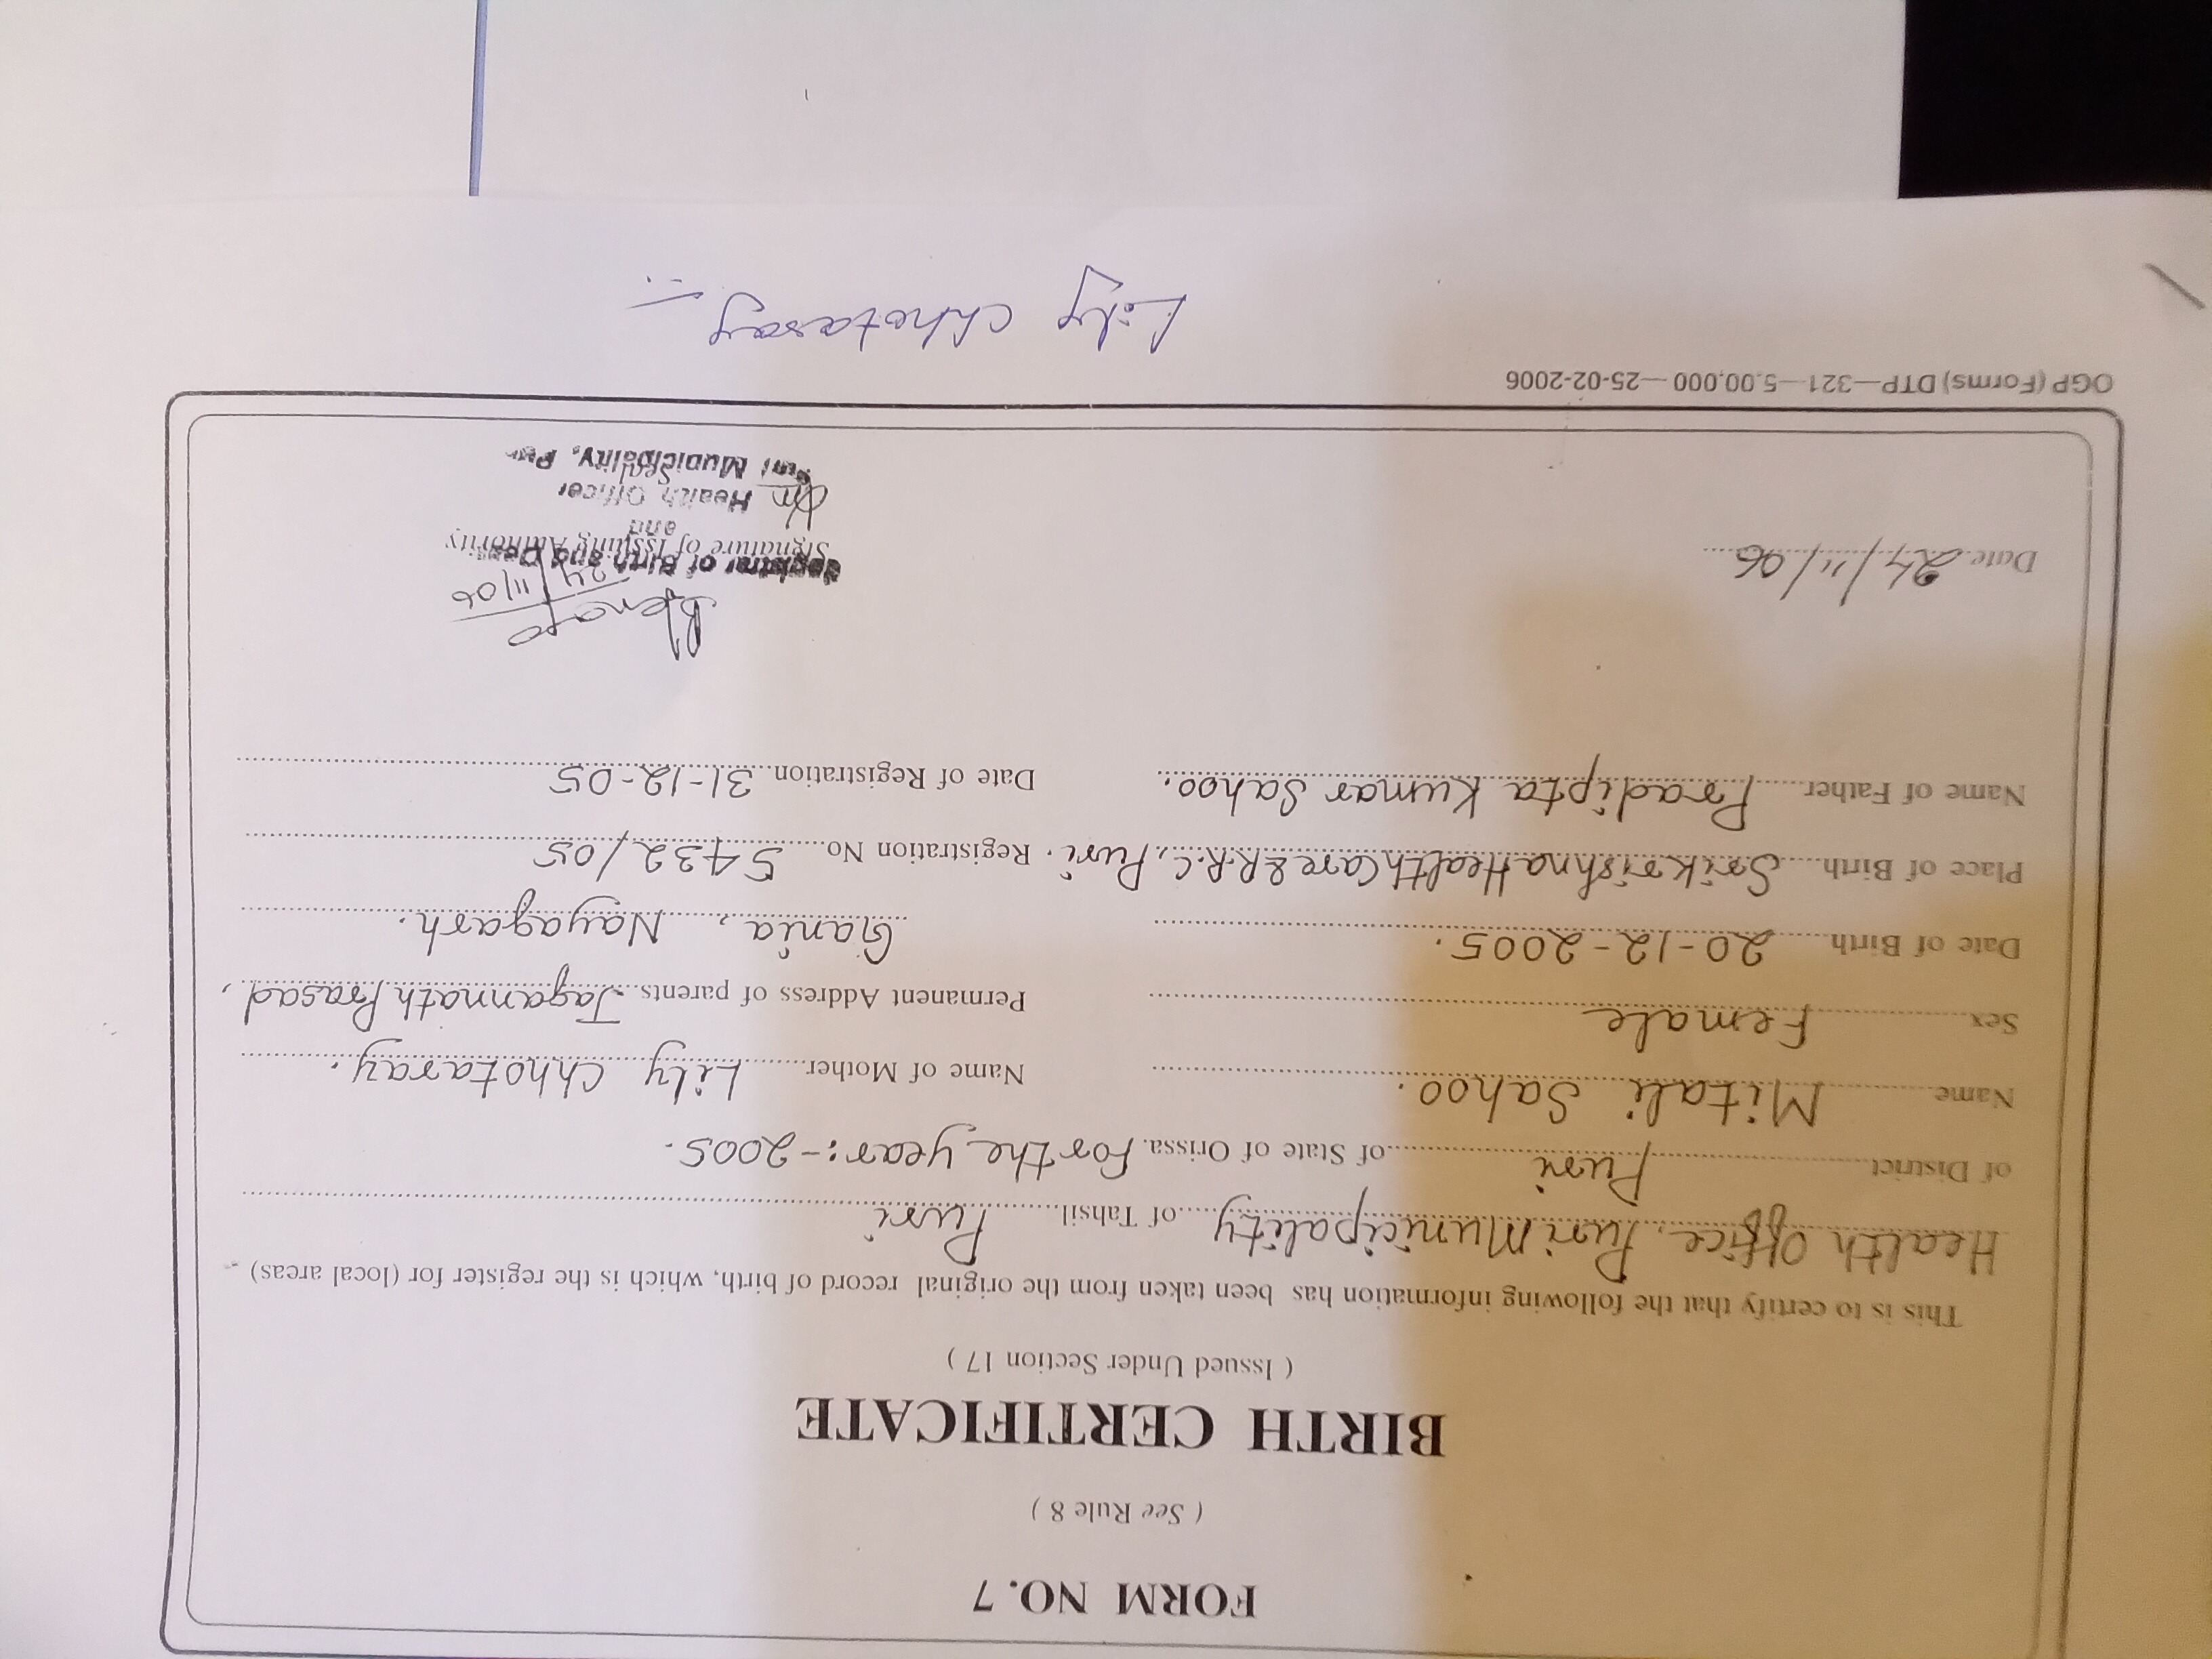 FORM NO. 7
( See Rule 8 )
BIRTH CERTIFICATE
( Issued Under Section 17 )
This is to certify that the following information has been taken from the original record of birth, which is the register for (local areas)
Health Office, Puri Municipality of Tahsil Puri
of District Puri of State of Orissa. For the year:- 2005.
Name Mitali Sahoo.
Name of Mother Lily Chhotaray.
Sex Female
Permanent Address of parents Jagannath Prasad,
Date of Birth 20-12-2005.
Gania, Nayagarh.
Place of Birth Srikrishna Health Care & R.R.C, Puri.
Registration No. 5432/05
Name of Father Pradipta Kumar Sahoo.
Date of Registration 31-12-05
24/11/06
Date 24/11/06
Registrar of Birth and
Signature of Issuing Authority
and
Health Officer
Seal
Puri Municipality,
OGP (Forms) DTP—321—5,00,000—25-02-2006
Lily Chhotaray